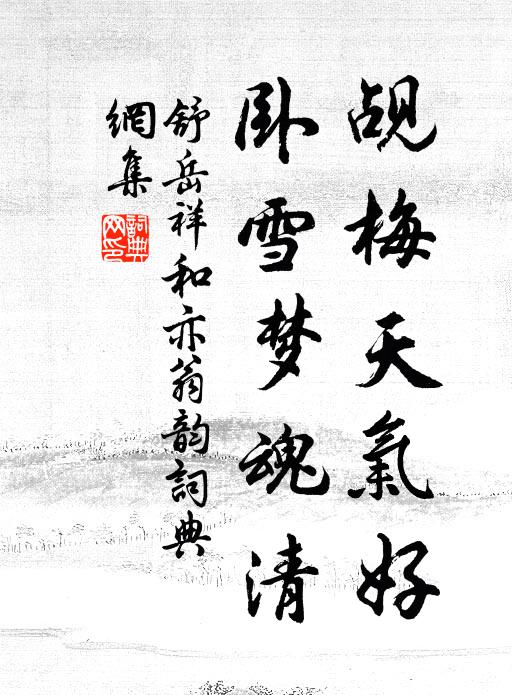 觇梅天氣好
卧雪梦魂清
舒岳祥和亦翁韵詞典
網集
詞典网印